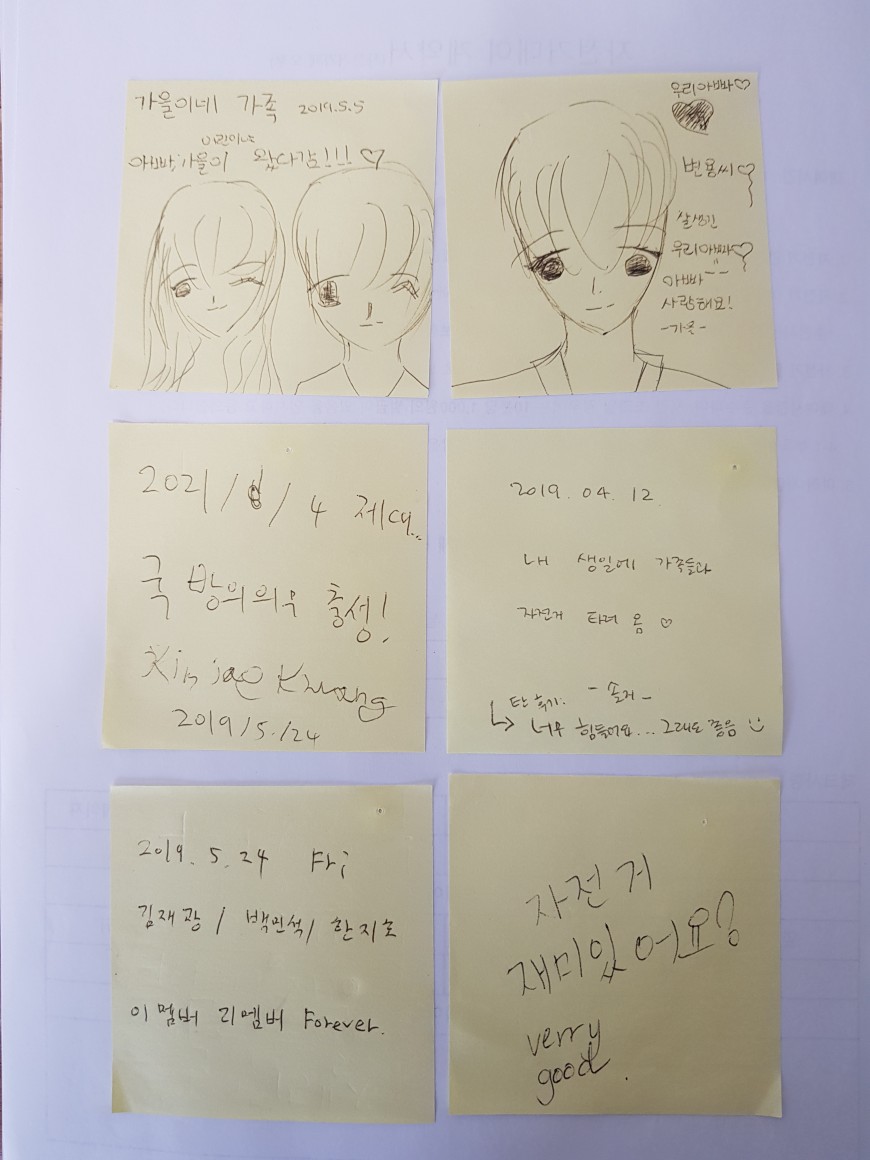 가을이네 가족 2019.5.5
어린이날
아빠,가을이 왔다감!!! ♡
우리아빠♡
변용씨♡
잘생긴
우리아빠♡
아빠
사랑해요!
-가을-
2021/ / 4 제대...
국방의의무 출생!
Kim jae Kwang
2019/5./24
2019.04.12.
내 생일에 가족들과
자전거 타러 옴 ♡
탄 후기.
너무 힘들어요... 그래도 좋음
2019.5.24 Fri
김재광 / 백민석/ 한지호
이 멤버 리멤버 Forever.
자전거
재미있어요?
verry
good.